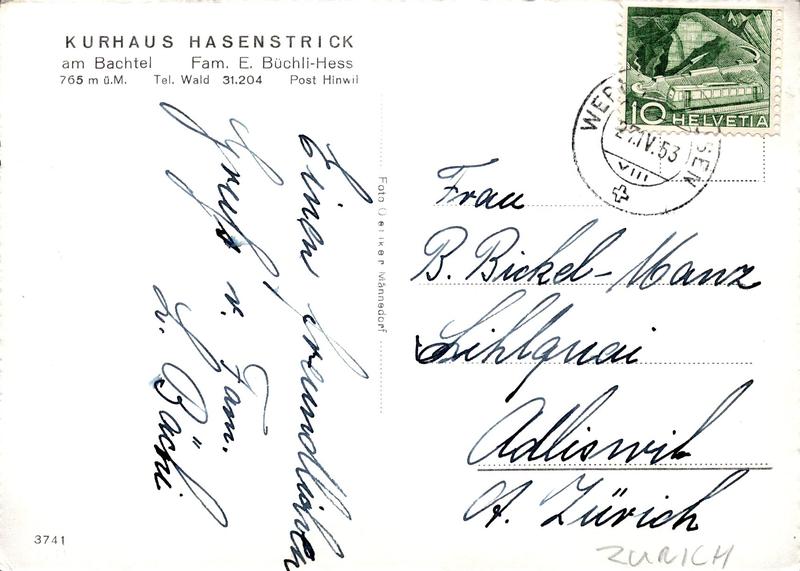 KURHAUS HASENSTRICK
am Bachtel Fam. E. Büchli-Hess
765 m ü.M. Tel. Wald 31.204 Post Hinwil
Einen freundlichen
Gruss v. Fam.
Bächi
Foto Oetiker Männedorf
10 HELVETIA
27.IV.53
VIII
Frau
B. Bickel-Manz
Sihlquai
Adliswil
Kt. Zürich
ZURICH
3741